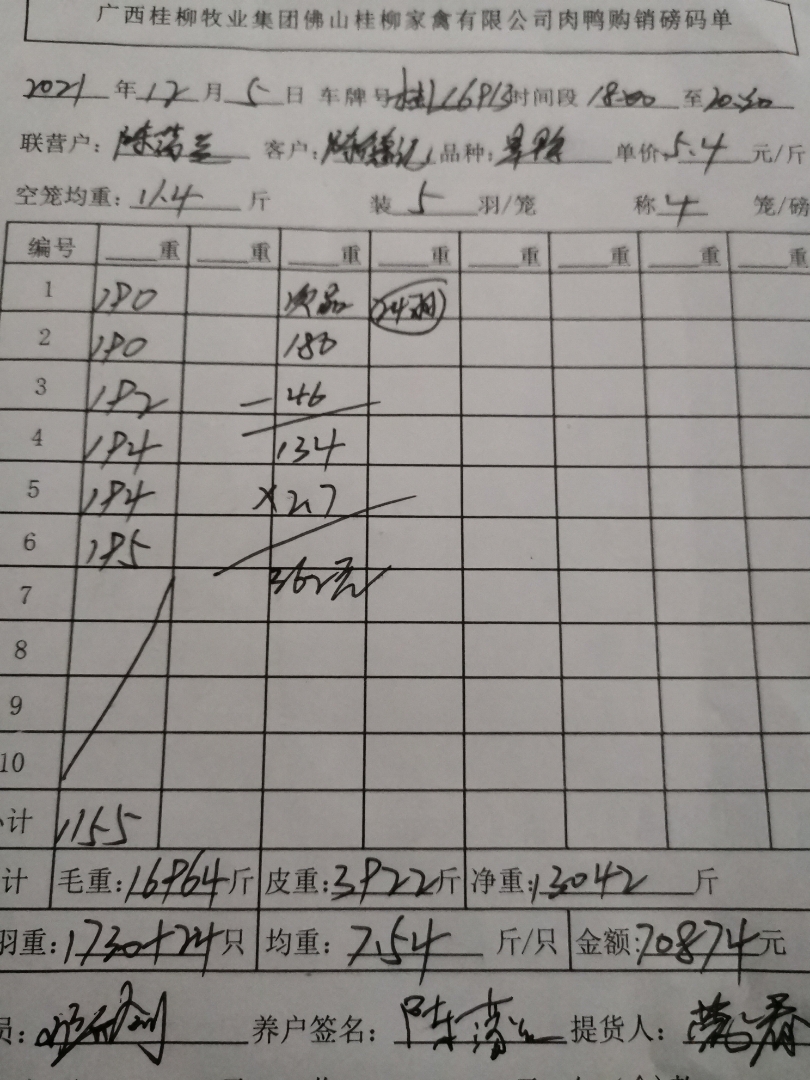 广西桂柳牧业集团佛山桂柳家禽有限公司肉鸭购销磅码单
2021 年 12 月 5 日 车牌号 时间段 18:00 至 20:30
联营户: 客户: 品种: 单价: 5.4 元/斤
空笼均重: 11.4 斤 装 5 羽/笼 称 4 笼/磅
编号 重 重 重 重 重 重 重 重
1 190 次品 (24羽)
2 190 180
3 192 - 46
4 194 134
5 194 ×2.7
6 195 362元
7
8
9
10
小计 1155
计 毛重: 16964 斤 皮重: 3922 斤 净重: 13042 斤
羽重: 1730+24 只 均重: 7.54 斤/只 金额: 70874 元
员: 养户签名: 提货人: